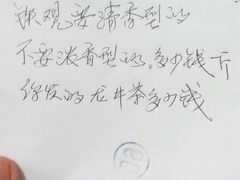 铁观音要清香型的
不要浓香型的。多少钱一斤
你发的龙井茶多少钱